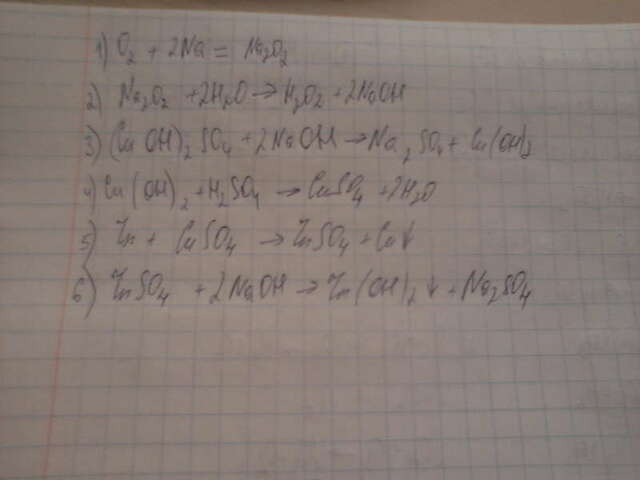 1) O₂ + 2Na = Na₂O₂
2) Na₂O₂ + 2H₂O → H₂O₂ + 2NaOH
3) (CuOH)₂SO₄ + 2NaOH → Na₂SO₄ + Cu(OH)₂
4) Cu(OH)₂ + H₂SO₄ → CuSO₄ + 2H₂O
5) Zn + CuSO₄ → ZnSO₄ + Cu↓
6) ZnSO₄ + 2NaOH → Zn(OH)₂↓ + Na₂SO₄